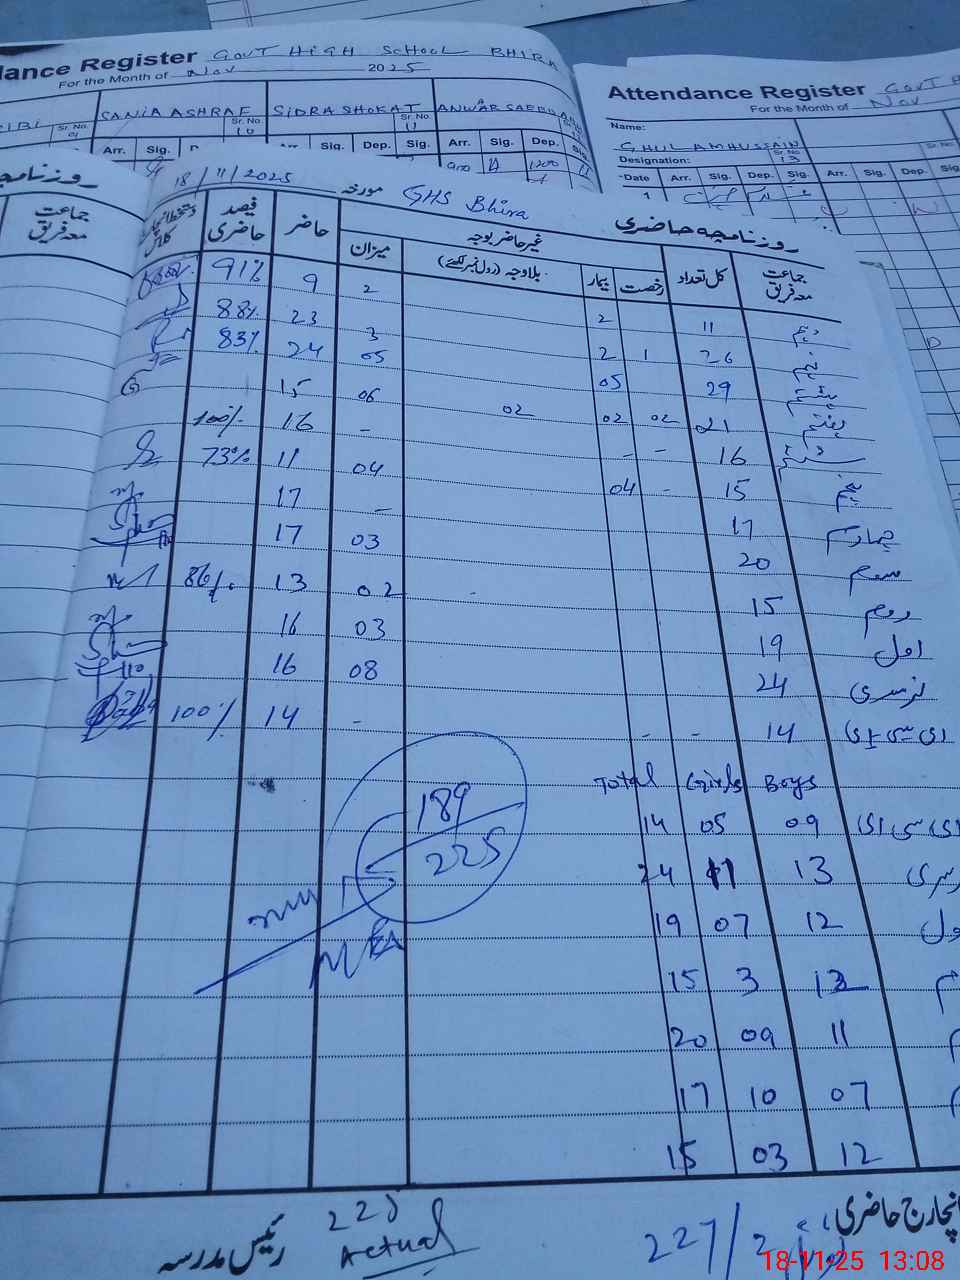 Attendance Register GOVT HIGH SCHOOL BHIRA
For the Month of Nov 2025
SANIA ASHRAF SIDRA SHOKAT ANWAR SAEED
Sr. No. 10 Sr. No. 11
Arr. Sig. Sig. Dep. Sig. Arr. Sig. Dep. Sig.
900 1200
Attendance Register GOVT H
For the Month of Nov
Name:
GHULAM HUSSAIN
Designation: Sr. No. 13 Sr. No.
Date Arr. Sig. Dep. Sig. Arr. Sig. Dep. Sig.
1
روزنامچہ حاضری GHS Bhira مورخہ 18/11/2025
جماعت معہ فریق کل تعداد غیر حاضر بوجہ میزان حاضر فیصد حاضری
رخصت بیمار بلاوجہ (رول نمبر لکھئے)
دہم 11 2 2 9 91%
نہم 26 1 2 3 23 88%
ہشتم 29 05 05 24 83%
ہفتم 21 02 02 02 06 15
ششم 16 - - - 16 100%
پنجم 15 - 04 04 11 73%
چہارم 17 - 17
سوم 20 03 17
دوم 15 02 13 86%
اول 19 03 16
نرسری 24 08 16
ای سی ای 14 - - - 14 100%
Total Girls Boys
ای سی ای 09 05 14
13 11 24
12 07 19
12 3 15
11 09 20
07 10 17
12 03 15
189
225
انچارج حاضری
رئیس مدرسہ
Actual
227/2
18-11-25 13:08